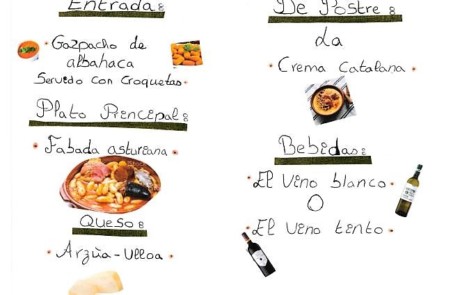 Entrada:
Gazpacho de
albahaca
Servido con Croquetas
Plato Principal:
Fabada asturiana
Queso:
Arzùa-Ulloa
De Postre:
La
Crema Catalana
Bebidas:
El Vino blanco
O
El Vino tinto